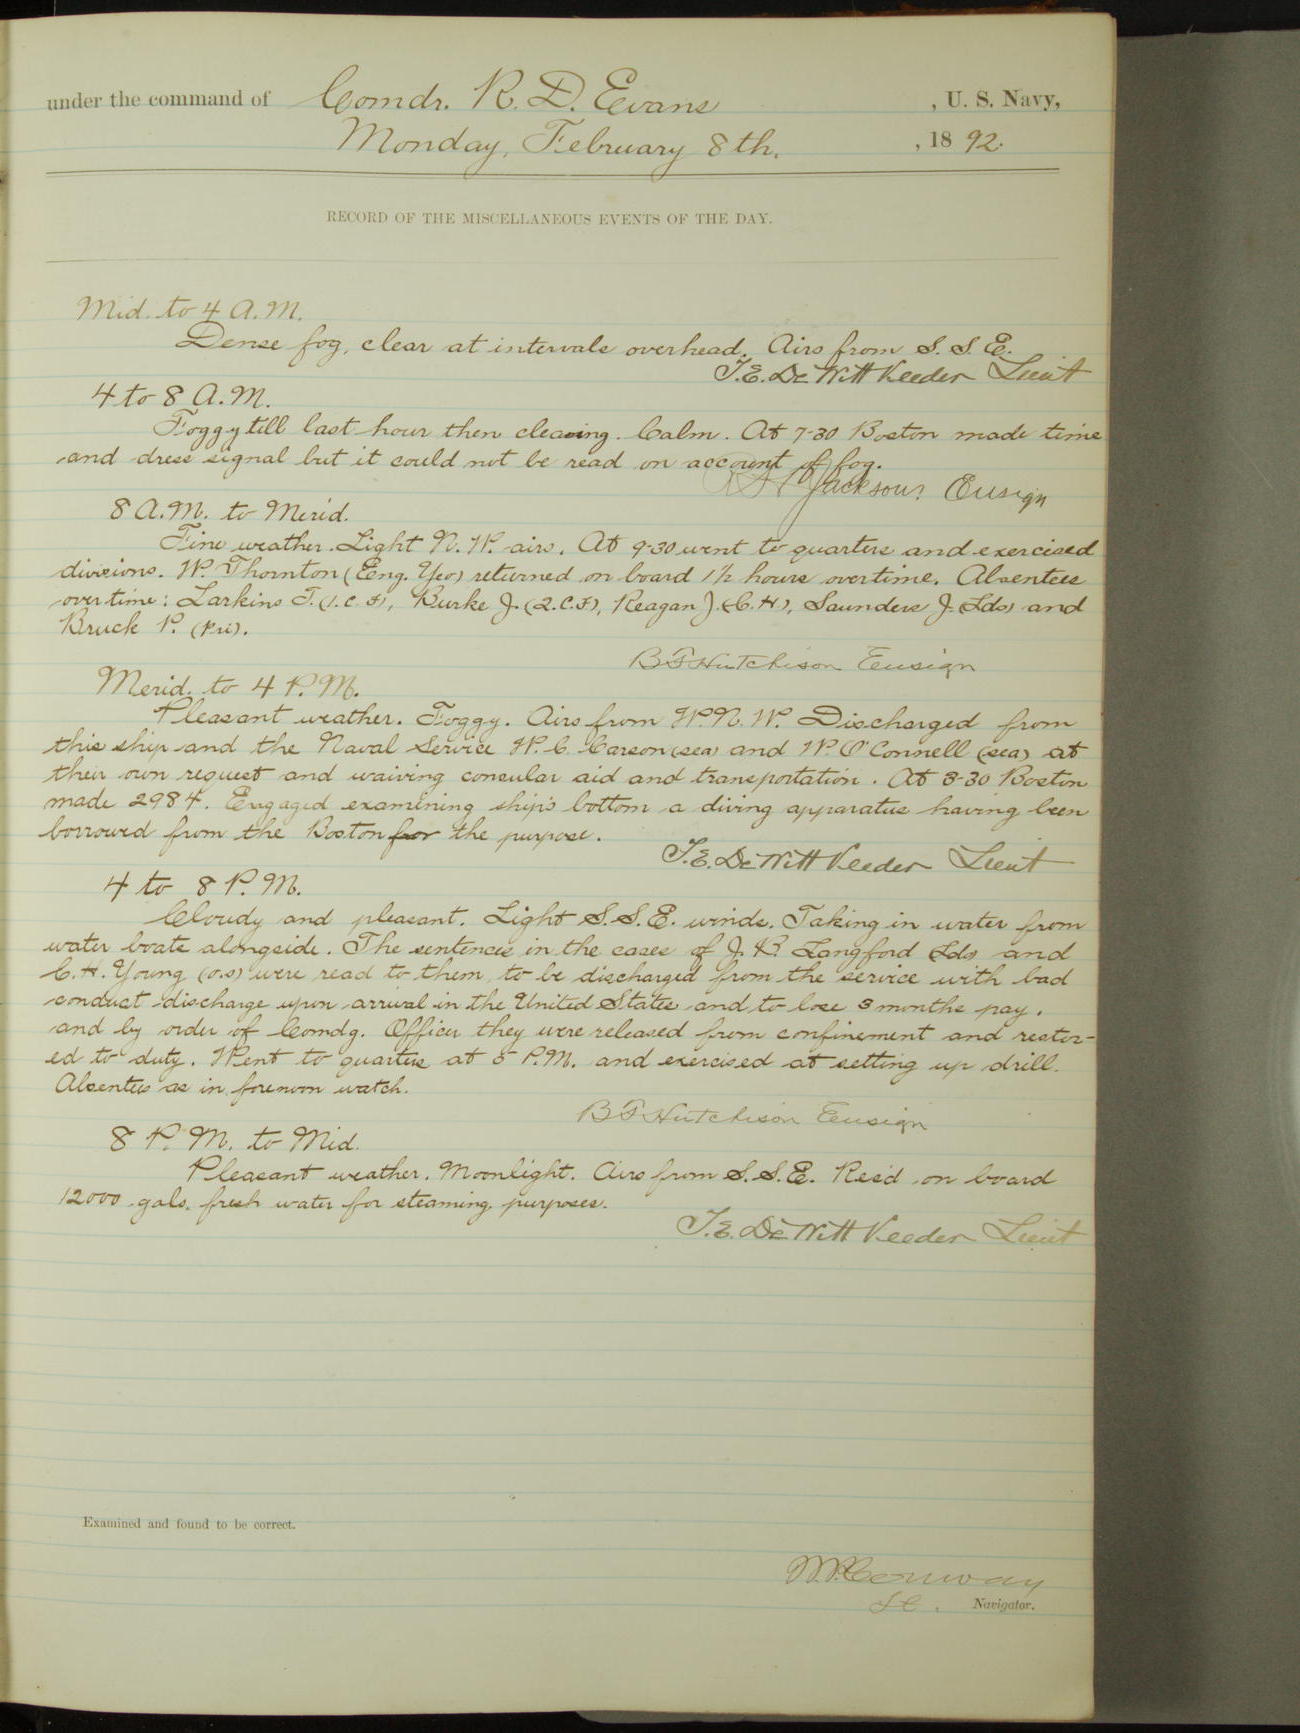 under the command of Comdr. R. D. Evans , U. S. Navy,
Monday, February 8th. , 1892.
RECORD OF THE MISCELLANEOUS EVENTS OF THE DAY.
Mid. to 4 A.M.
Dense fog, clear at intervals overhead. Airs from S. S. E.
T. E. DeWitt Veeder Lieut
4 to 8 A.M.
Foggy till last hour then clearing. Calm. At 7-30 Boston made time
and dress signal but it could not be read on account of fog.
Jackson Ensign
8 A.M. to Merid.
Fine weather. Light N. W. airs. At 9-30 went to quarters and exercised
divisions. W. Thornton (Eng. Yeo) returned on board 1½ hours overtime. Absentees
overtime: Larkins T. (1. C. F), Burke J. (2. C. F), Reagan J. (C. H), Saunders J. (Lds) and
Bruck P. (Pri).
B F Hutchison Ensign
Merid. to 4 P.M.
Pleasant weather. Foggy. Airs from W. N. W. Discharged from
this ship and the Naval Service W. C. Carson (sea) and W. O'Connell (sea) at
their own request and waiving consular aid and transportation. At 3-30 Boston
made 2984. Engaged examining ship's bottom a diving apparatus having been
borrowed from the Boston for the purpose.
T. E. DeWitt Veeder Lieut
4 to 8 P.M.
Cloudy and pleasant. Light S. S. E. winds. Taking in water from
water boats alongside. The sentences in the cases of J. Langford Lds and
C. H. Young (O.S) were read to them, to be discharged from the service with bad
conduct discharge upon arrival in the United States and to lose 3 months pay.
and by order of Comdg. Officer they were released from confinement and restor-
ed to duty. Went to quarters at 5 P.M. and exercised at setting up drill.
Absentees as in forenoon watch.
B F Hutchison Ensign
8 P. M. to Mid.
Pleasant weather. Moonlight. Airs from S. S. E. Rec'd on board
12000 gals. fresh water for steaming purposes.
T. E. DeWitt Veeder Lieut
Examined and found to be correct.
W. P. Conway
Lt. Navigator.